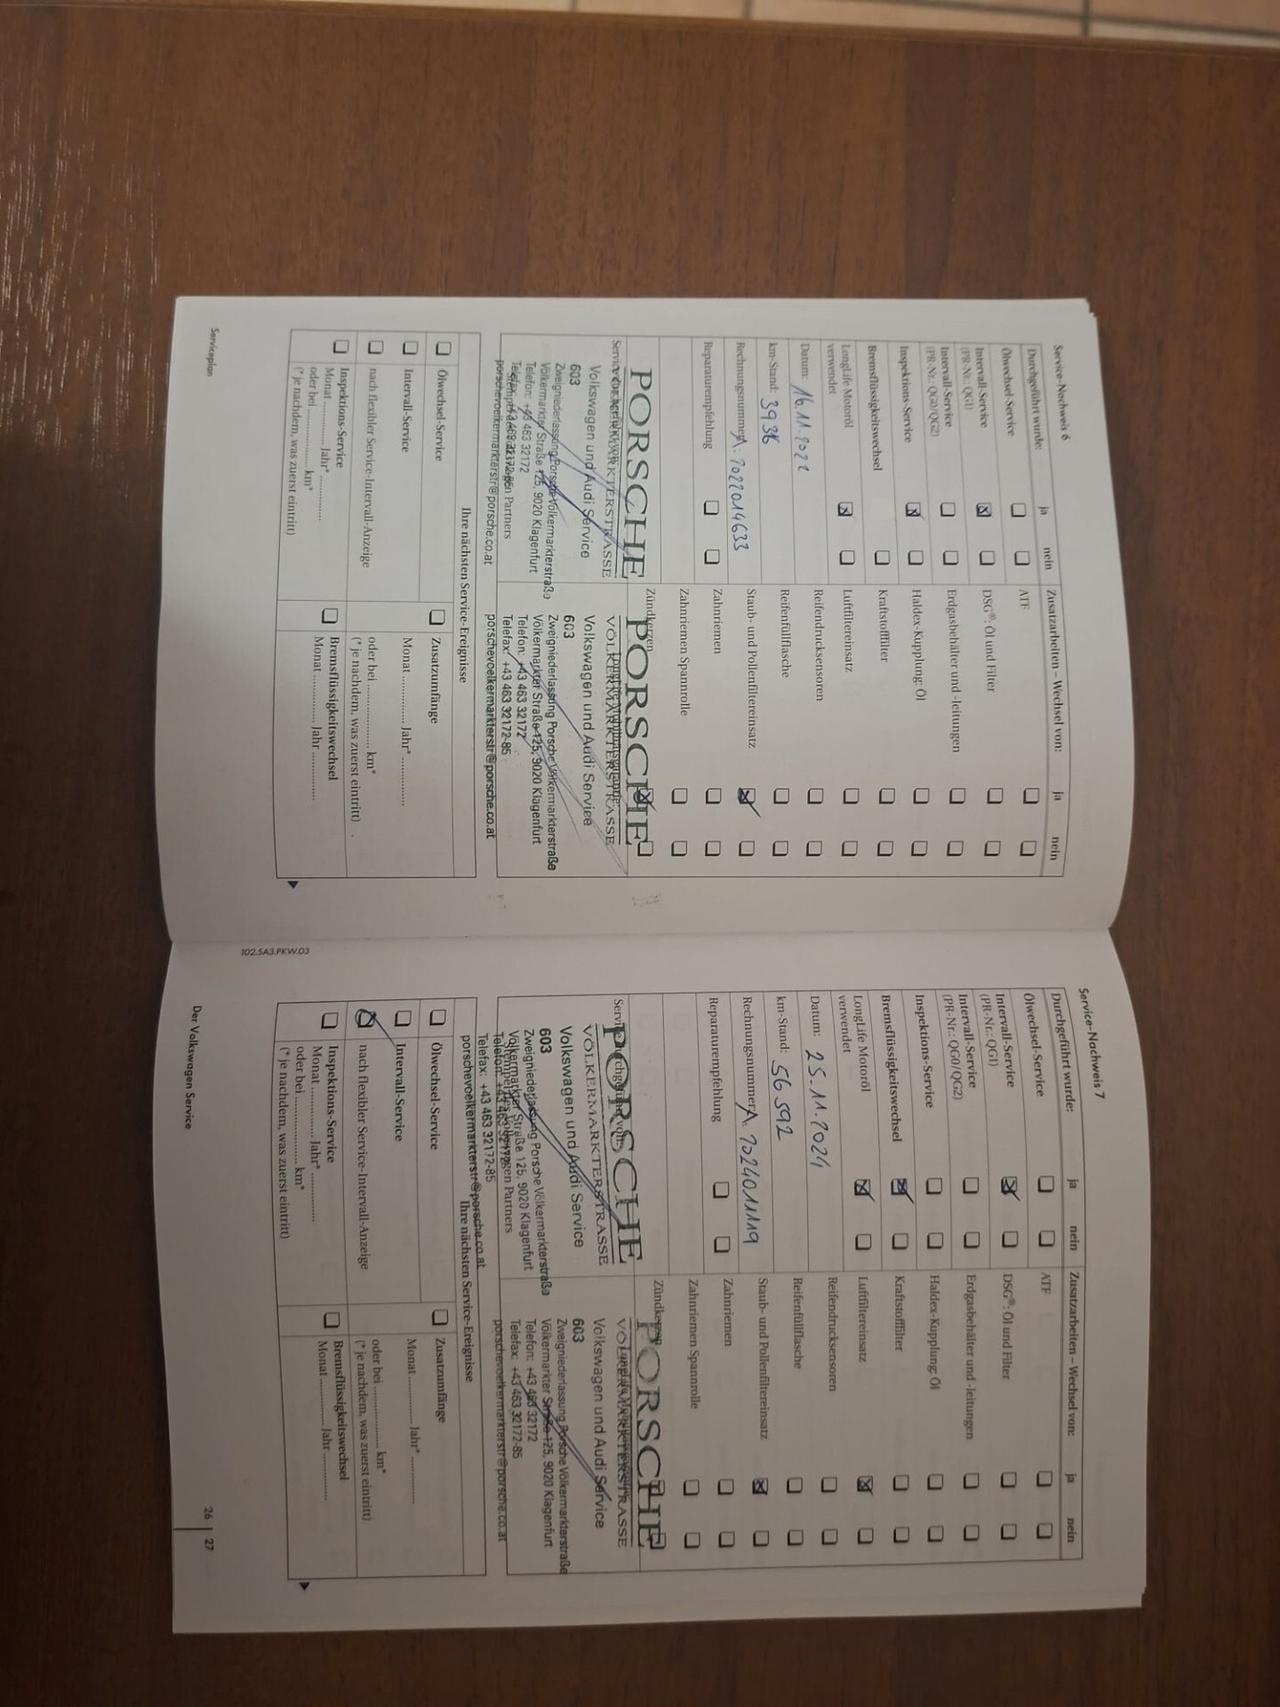 Service-Nachweis 6
Durchgeführt wurde: ja nein
Ölwechsel-Service
Intervall-Service
(PR-Nr.: QG1)
Intervall-Service
(PR-Nr.: QG0/QG2)
Inspektions-Service
Bremsflüssigkeitswechsel
LongLife Motoröl
verwendet
Datum: 16.11.2022
km-Stand: 3936
Rechnungsnummer: 2022014633
Reparaturempfehlung
Zusatzarbeiten – Wechsel von: ja nein
ATF
DSG®: Öl und Filter
Erdgasbehälter und -leitungen
Haldex-Kupplung: Öl
Kraftstofffilter
Luftfiltereinsatz
Reifendrucksensoren
Reifenfüllflasche
Staub- und Pollenfiltereinsatz
Zahnriemen
Zahnriemen Spannrolle
Zündkerzen
PORSCHE
Volkswagen und Audi Service
603
Zweigniederlassung Porsche Völkermarkterstraße
Völkermarkter Straße 125, 9020 Klagenfurt
Telefon: +43 463 32172
porschevoelkermarkterstr@porsche.co.at
PORSCHE
VÖLKERMARKTERSTRASSE
Volkswagen und Audi Service
603
Zweigniederlassung Porsche Völkermarkterstraße
Völkermarkter Straße 125, 9020 Klagenfurt
Telefon: +43 463 32172
Telefax: +43 463 32172-85
porschevoelkermarkterstr@porsche.co.at
Ihre nächsten Service-Ereignisse
Ölwechsel-Service
Intervall-Service
nach flexibler Service-Intervall-Anzeige
Inspektions-Service
Monat ............ Jahr* ............
oder bei ............ km*
(* je nachdem, was zuerst eintritt)
Zusatzumfänge
Monat ............ Jahr* ............
oder bei ............ km*
(* je nachdem, was zuerst eintritt)
Bremsflüssigkeitswechsel
Monat ............ Jahr ............
Serviceplan
Service-Nachweis 7
Durchgeführt wurde: ja nein
Ölwechsel-Service
Intervall-Service
(PR-Nr.: QG1)
Intervall-Service
(PR-Nr.: QG0/QG2)
Inspektions-Service
Bremsflüssigkeitswechsel
LongLife Motoröl
verwendet
Datum: 25.11.2024
km-Stand: 56592
Rechnungsnummer: 2024011119
Reparaturempfehlung
Zusatzarbeiten – Wechsel von: ja nein
ATF
DSG®: Öl und Filter
Erdgasbehälter und -leitungen
Haldex-Kupplung: Öl
Kraftstofffilter
Luftfiltereinsatz
Reifendrucksensoren
Reifenfüllflasche
Staub- und Pollenfiltereinsatz
Zahnriemen
Zahnriemen Spannrolle
Zündkerzen
PORSCHE
VÖLKERMARKTERSTRASSE
Volkswagen und Audi Service
603
Zweigniederlassung Porsche Völkermarkterstraße
Völkermarkter Straße 125, 9020 Klagenfurt
Telefon: +43 463 32172
Telefax: +43 463 32172-85
porschevoelkermarkterstr@porsche.co.at
PORSCHE
VÖLKERMARKTERSTRASSE
Volkswagen und Audi Service
603
Zweigniederlassung Porsche Völkermarkterstraße
Völkermarkter Straße 125, 9020 Klagenfurt
Telefon: +43 463 32172
Telefax: +43 463 32172-85
porschevoelkermarkterstr@porsche.co.at
Ihre nächsten Service-Ereignisse
Ölwechsel-Service
Intervall-Service
nach flexibler Service-Intervall-Anzeige
Inspektions-Service
Monat ............ Jahr* ............
oder bei ............ km*
(* je nachdem, was zuerst eintritt)
Zusatzumfänge
Monat ............ Jahr* ............
oder bei ............ km*
(* je nachdem, was zuerst eintritt)
Bremsflüssigkeitswechsel
Monat ............ Jahr ............
102.5A3.PKW.03
Der Volkswagen Service
26 | 27